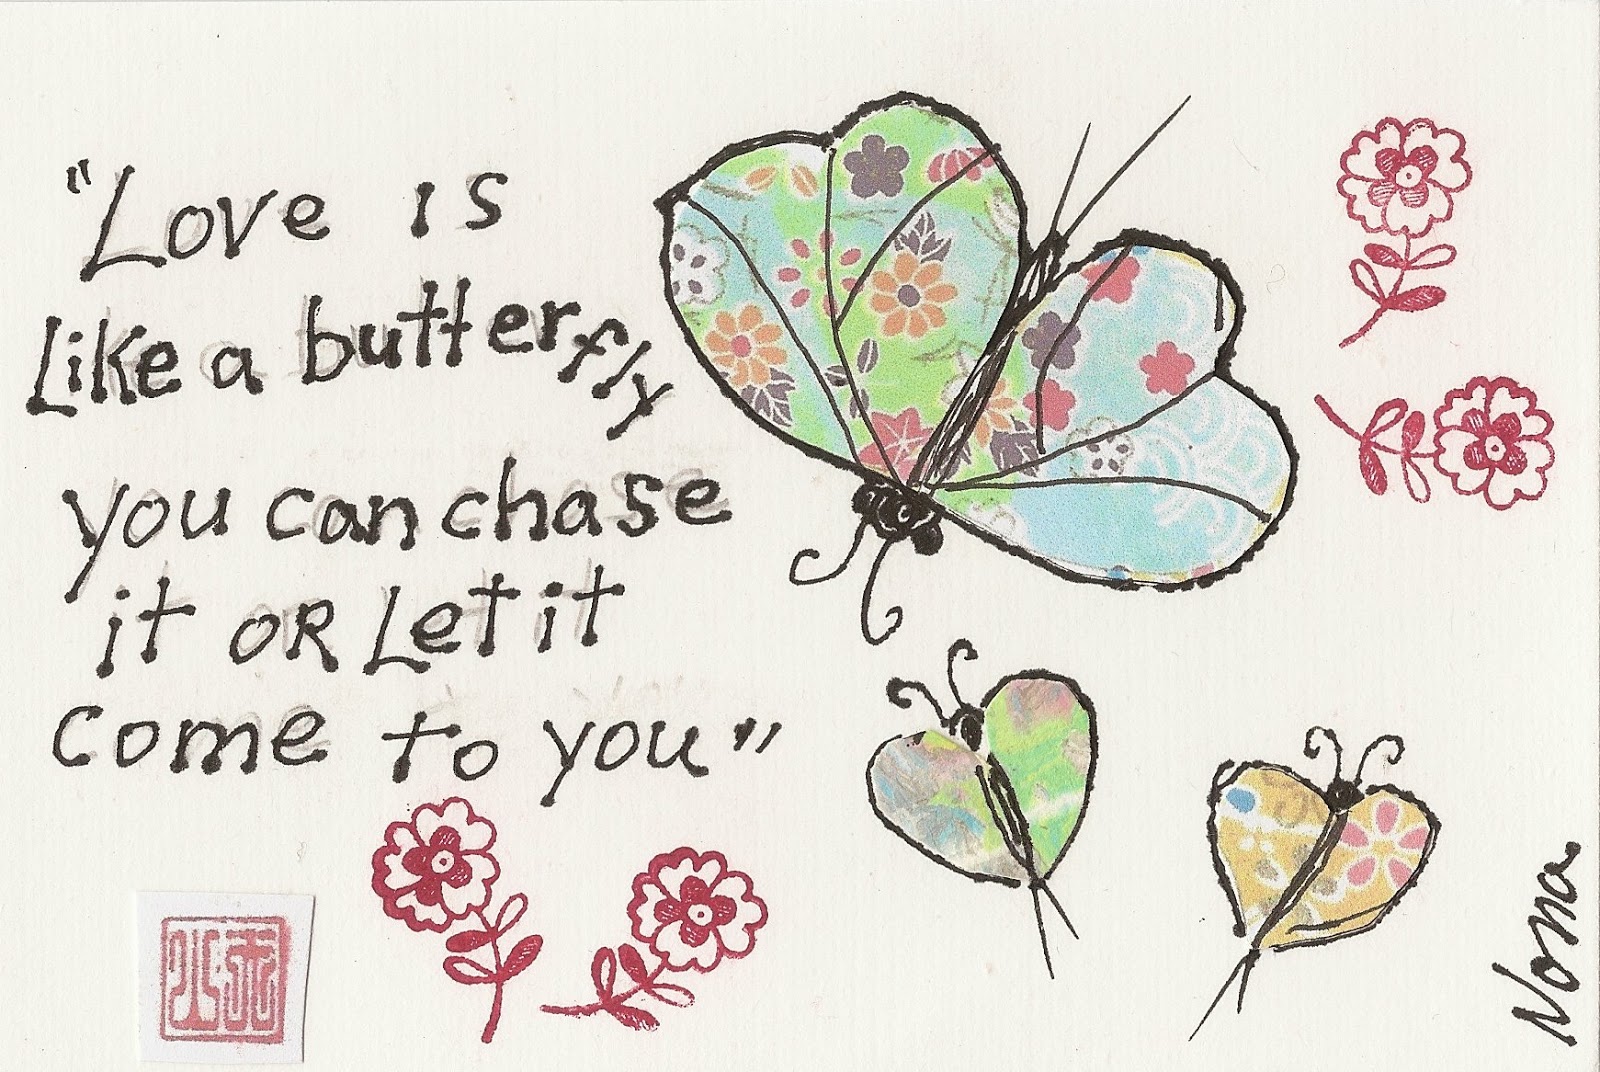 "Love is
Like a butterfly
you can chase
it OR Let it
come to you"
Nona